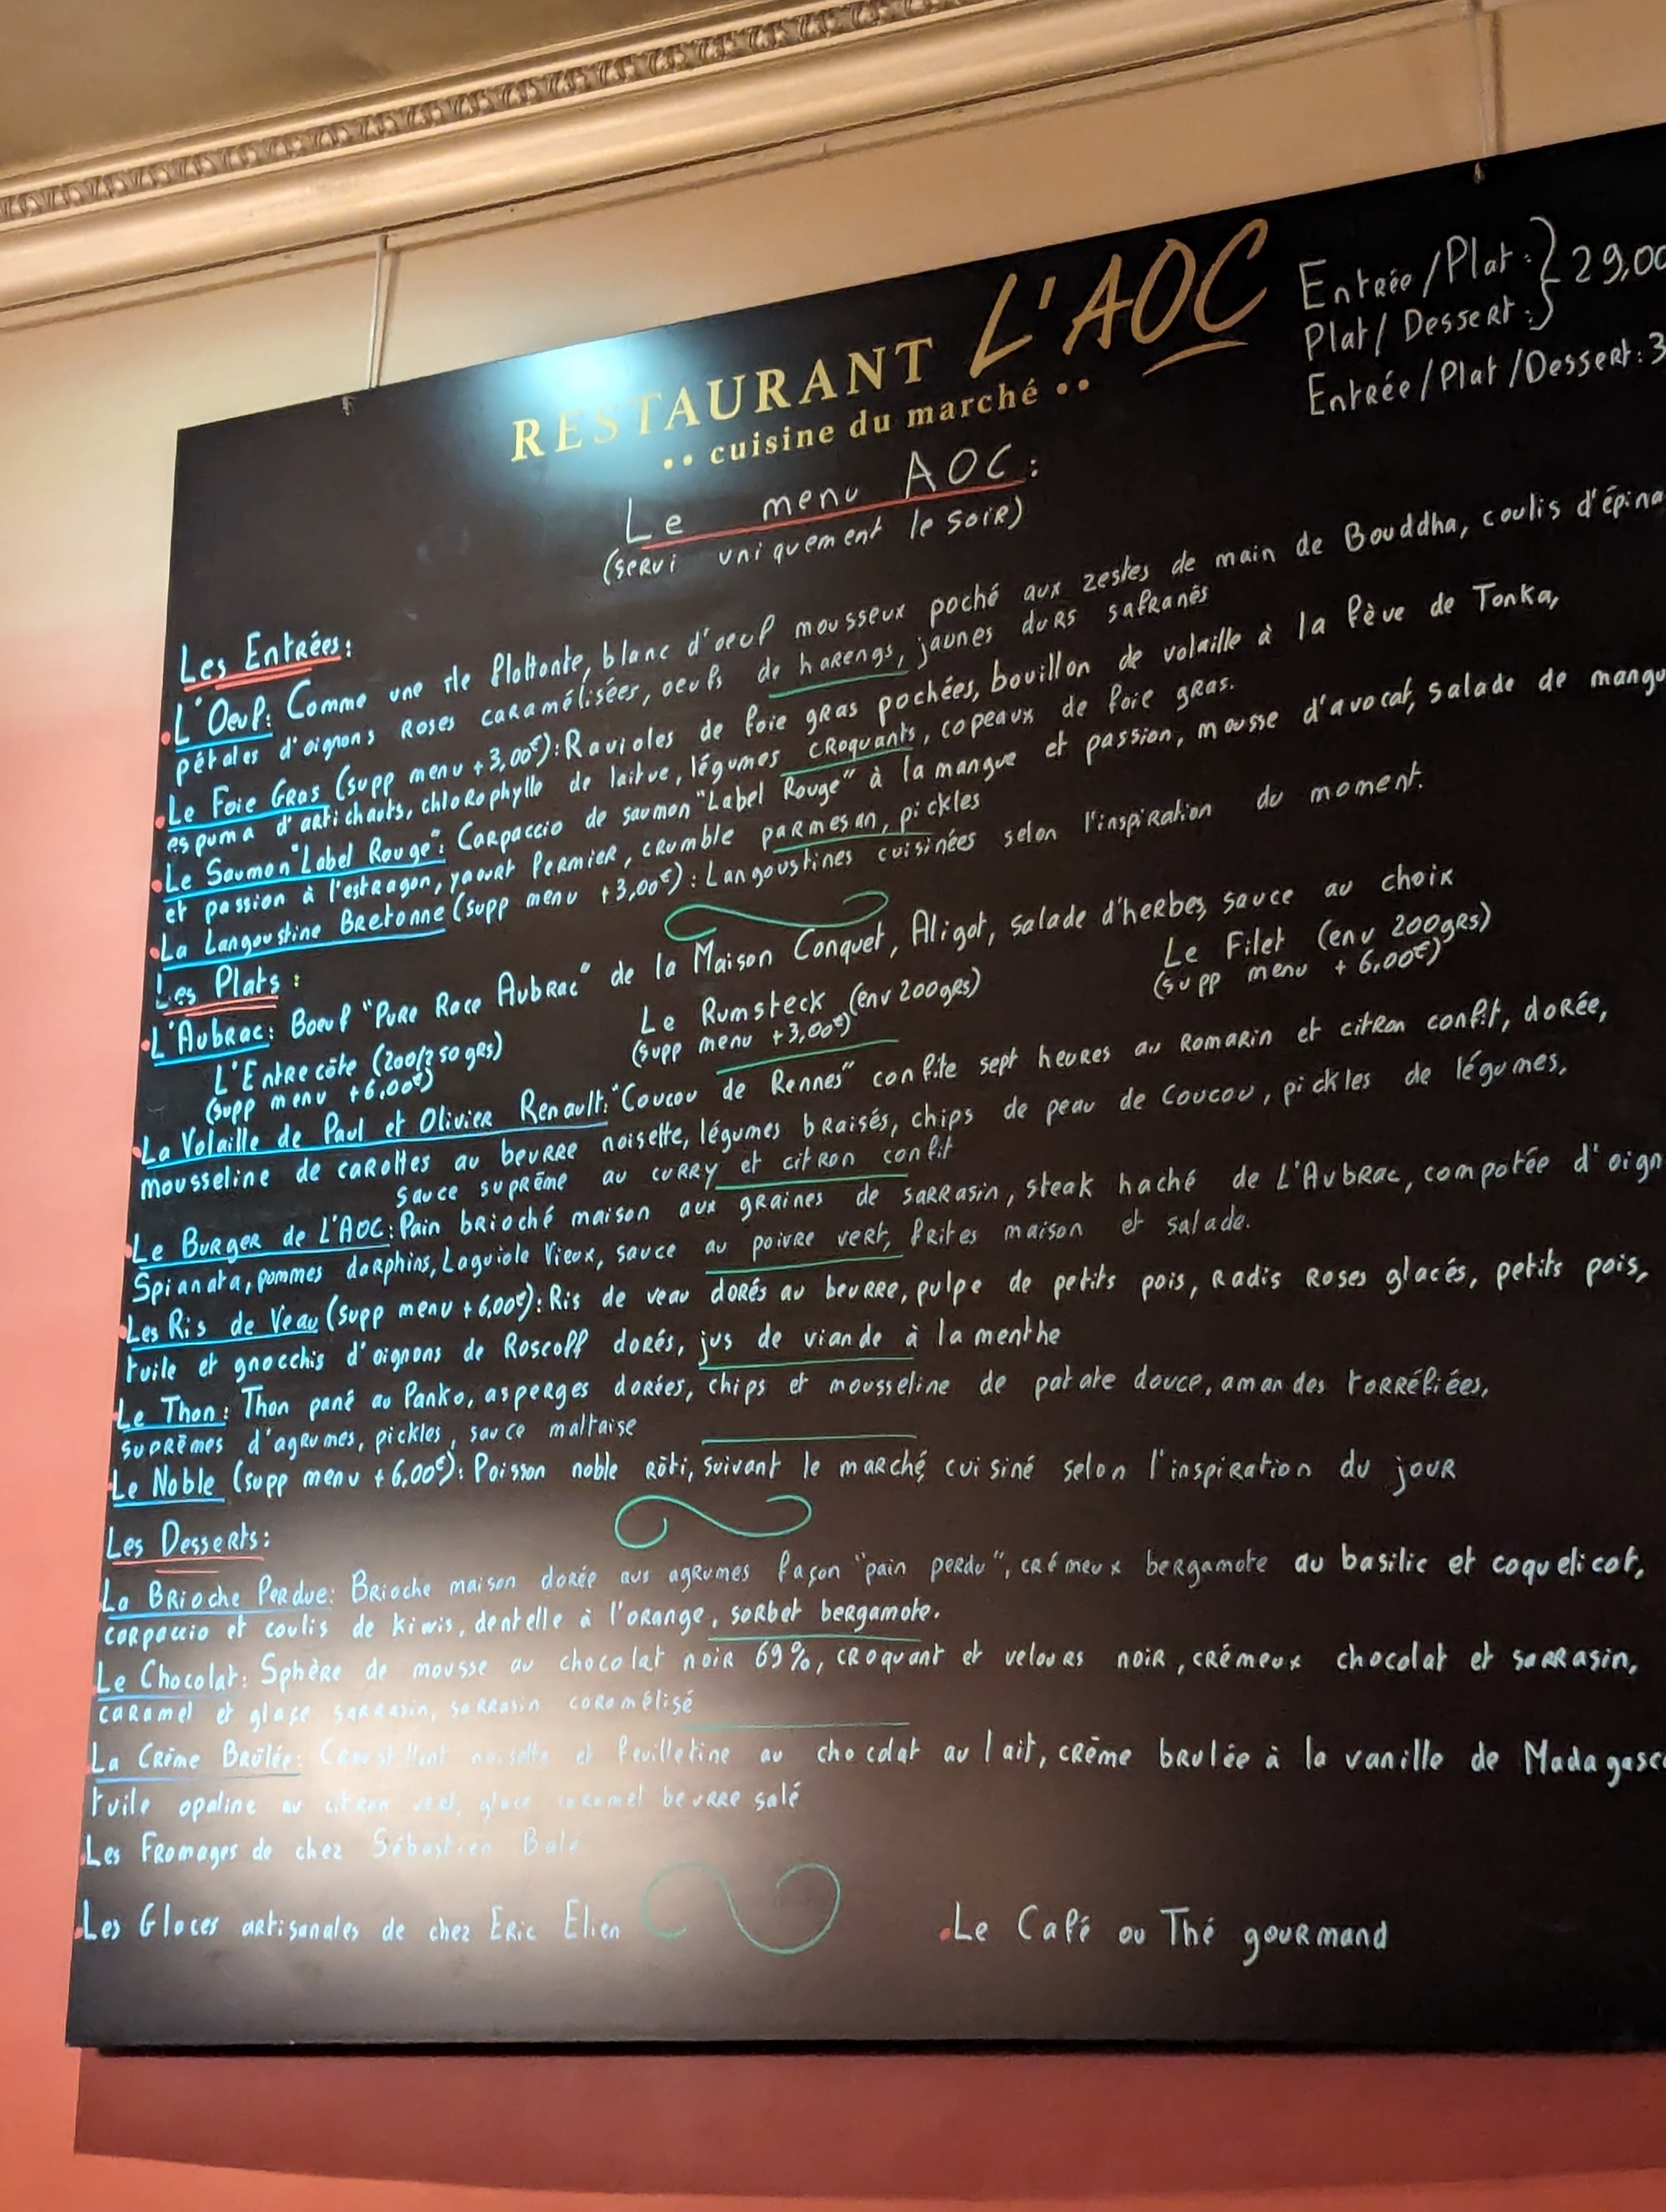 RESTAURANT L'AOC
•• cuisine du marché ••
Entrée/Plat :} 29,00
Plat/ Dessert :}
Entrée/Plat/Dessert: 3
Le menu AOC:
(servi uniquement le soir)
Les Entrées:
L'Oeuf: Comme une île flottante, blanc d'oeuf mousseux poché aux zestes de main de Bouddha, coulis d'épina
pétales d'oignons roses caramélisées, oeufs de harengs, jaunes durs safranés
Le Foie Gras (supp menu +3,00€): Ravioles de foie gras pochées, bouillon de volaille à la fève de Tonka,
espuma d'artichauts, chlorophylle de laitue, légumes croquants, copeaux de foie gras.
Le Saumon "Label Rouge": Carpaccio de saumon "Label Rouge" à la mangue et passion, mousse d'avocat, salade de mangu
et passion à l'estragon, yaourt fermier, crumble parmesan, pickles
La Langoustine Bretonne (supp menu +3,00€): Langoustines cuisinées selon l'inspiration du moment.
Les Plats :
L'Aubrac: Boeuf "Pure Race Aubrac" de la Maison Conquet, Aligot, salade d'herbes, sauce au choix
L'Entrecôte (200/250grs) Le Rumsteck (env 200grs) Le Filet (env 200grs)
(supp menu +6,00€) (supp menu +3,00€) (supp menu +6,00€)
La Volaille de Paul et Olivier Renault: "Coucou de Rennes" confite sept heures au romarin et citron confit, dorée,
mousseline de carottes au beurre noisette, légumes braisés, chips de peau de Coucou, pickles de légumes,
sauce suprême au curry et citron confit
Le Burger de L'AOC: Pain brioché maison aux graines de sarrasin, steak haché de L'Aubrac, compotée d'oign
Spianata, pommes darphins, Laguiole Vieux, sauce au poivre vert, frites maison et salade.
Les Ris de Veau (supp menu +6,00€): Ris de veau dorés au beurre, pulpe de petits pois, radis roses glacés, petits pois,
tuile et gnocchis d'oignons de Roscoff dorés, jus de viande à la menthe
Le Thon: Thon pané au Panko, asperges dorées, chips et mousseline de patate douce, amandes torréfiées,
suprêmes d'agrumes, pickles, sauce maltaise
Le Noble (supp menu +6,00€): Poisson noble rôti, suivant le marché, cuisiné selon l'inspiration du jour
Les Desserts:
La Brioche Perdue: Brioche maison dorée aux agrumes façon "pain perdu", crémeux bergamote au basilic et coquelicot,
carpaccio et coulis de kiwis, dentelle à l'orange, sorbet bergamote.
Le Chocolat: Sphère de mousse au chocolat noir 69%, croquant et velours noir, crémeux chocolat et sarrasin,
caramel et glace sarrasin, sarrasin caramélisé
La Crème Brûlée: Croustillant noisette et feuilletine au chocolat au lait, crème brulée à la vanille de Madagasc
tuile opaline au citron vert, glace caramel beurre salé
Les Fromages de chez Sébastien Balé
Les Glaces artisanales de chez Eric Elien
Le Café ou Thé gourmand